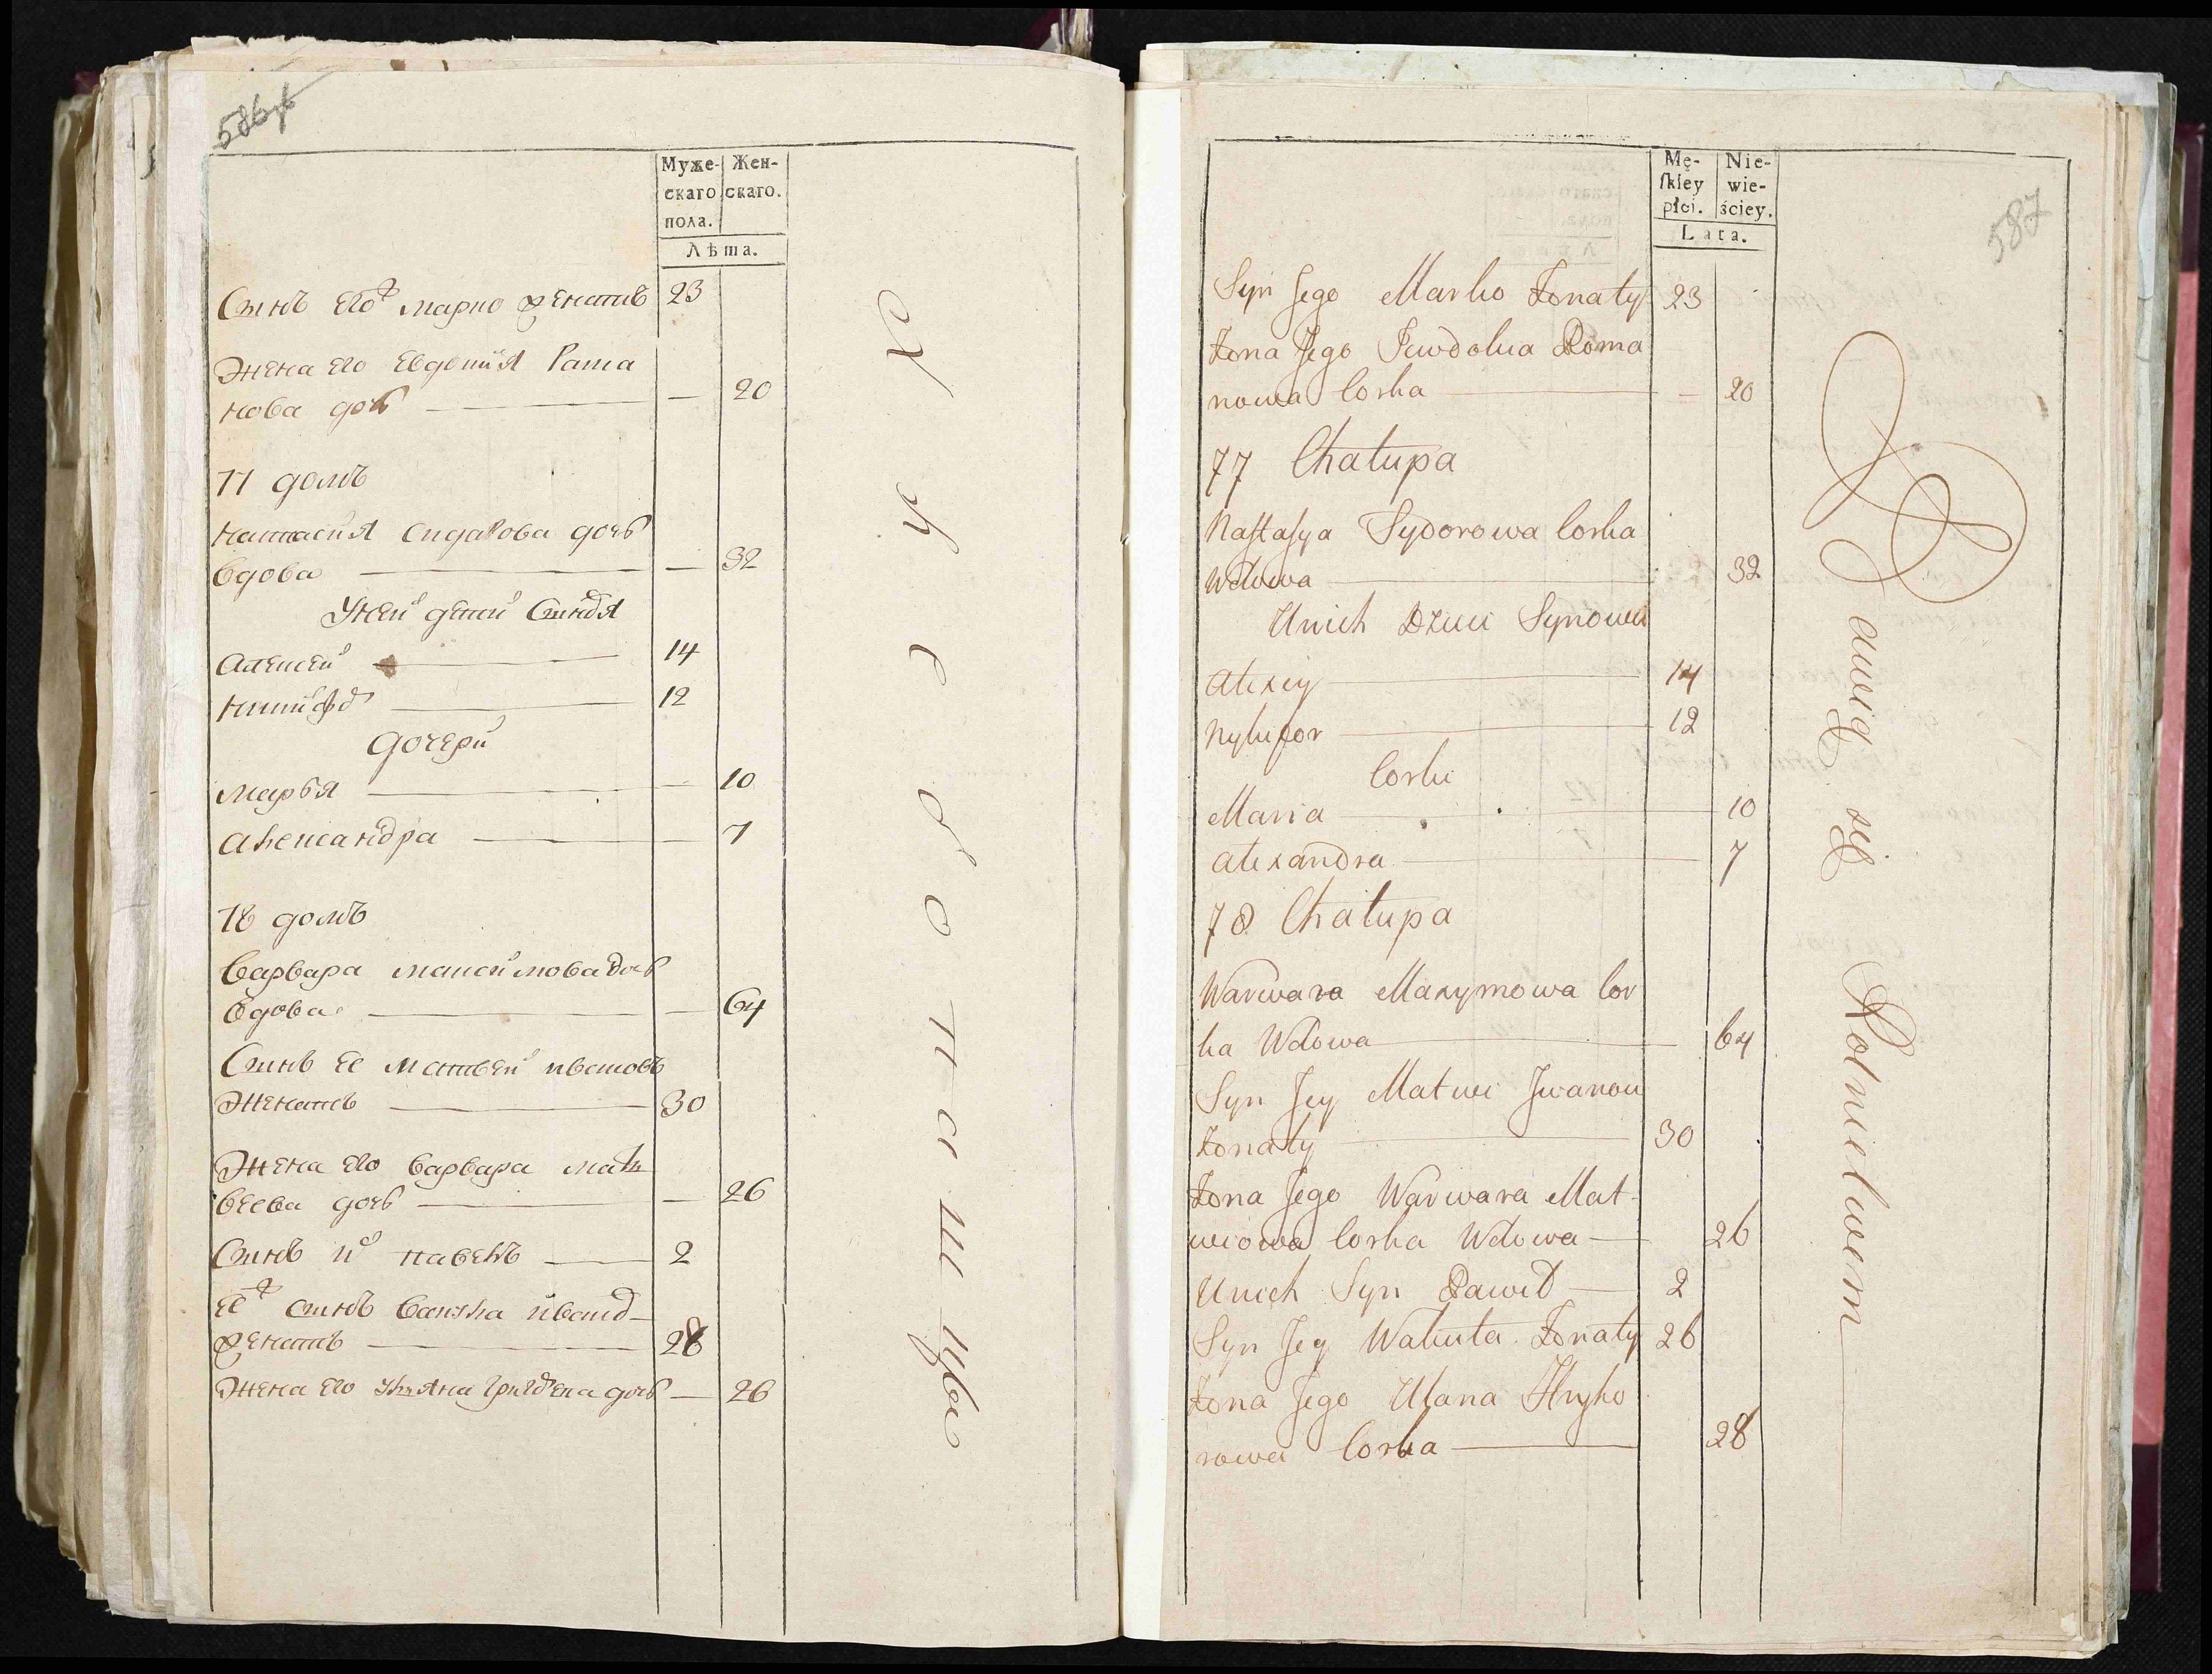 586
Муже-
скаго
пола.
Жен-
скаго.
Лѣта.
Сынъ его марко женатъ 23
Жена его Евдокия Рама
нова дочь — 20
77 домъ
Настасия Сидарова дочь
вдова — 32
У ней детей Сыновья
Алексей 14
Никифоръ 12
Дочери
Марья 10
Александра 7
78 домъ
Варвара максимова дочь
вдова — 64
Сынъ ее матвей ивановъ
женатъ 30
Жена его варвара мат
веева дочь — 26
Сынъ их 2
ее сынъ ивановъ
женатъ 28
Жена его Ульяна дочь — 26
587
Mę-
skiey
płci.
Nie-
wie-
ściey.
Lata.
Syn Jego Marko Żonaty 23
Żona Jego Jewdokia Roma
nowa Corka — 20
77 Chałupa
Nastasya Sydorowa Corka
Wdowa 32
U nich Dzieci Synowie
Alexiy 14
Nykifor 12
Corki
Maria 10
Alexandra 7
78 Chałupa
Warwara Maxymowa Cor
ka Wdowa 64
Syn Jey Matwi Jwanow
Żonaty 30
Żona Jego Warwara Mat-
wiowa Corka Wdowa 26
U nich Syn Dawid 2
Syn Jey Żonaty 26
Żona Jego Ulana Hryho
rowa Corka 28